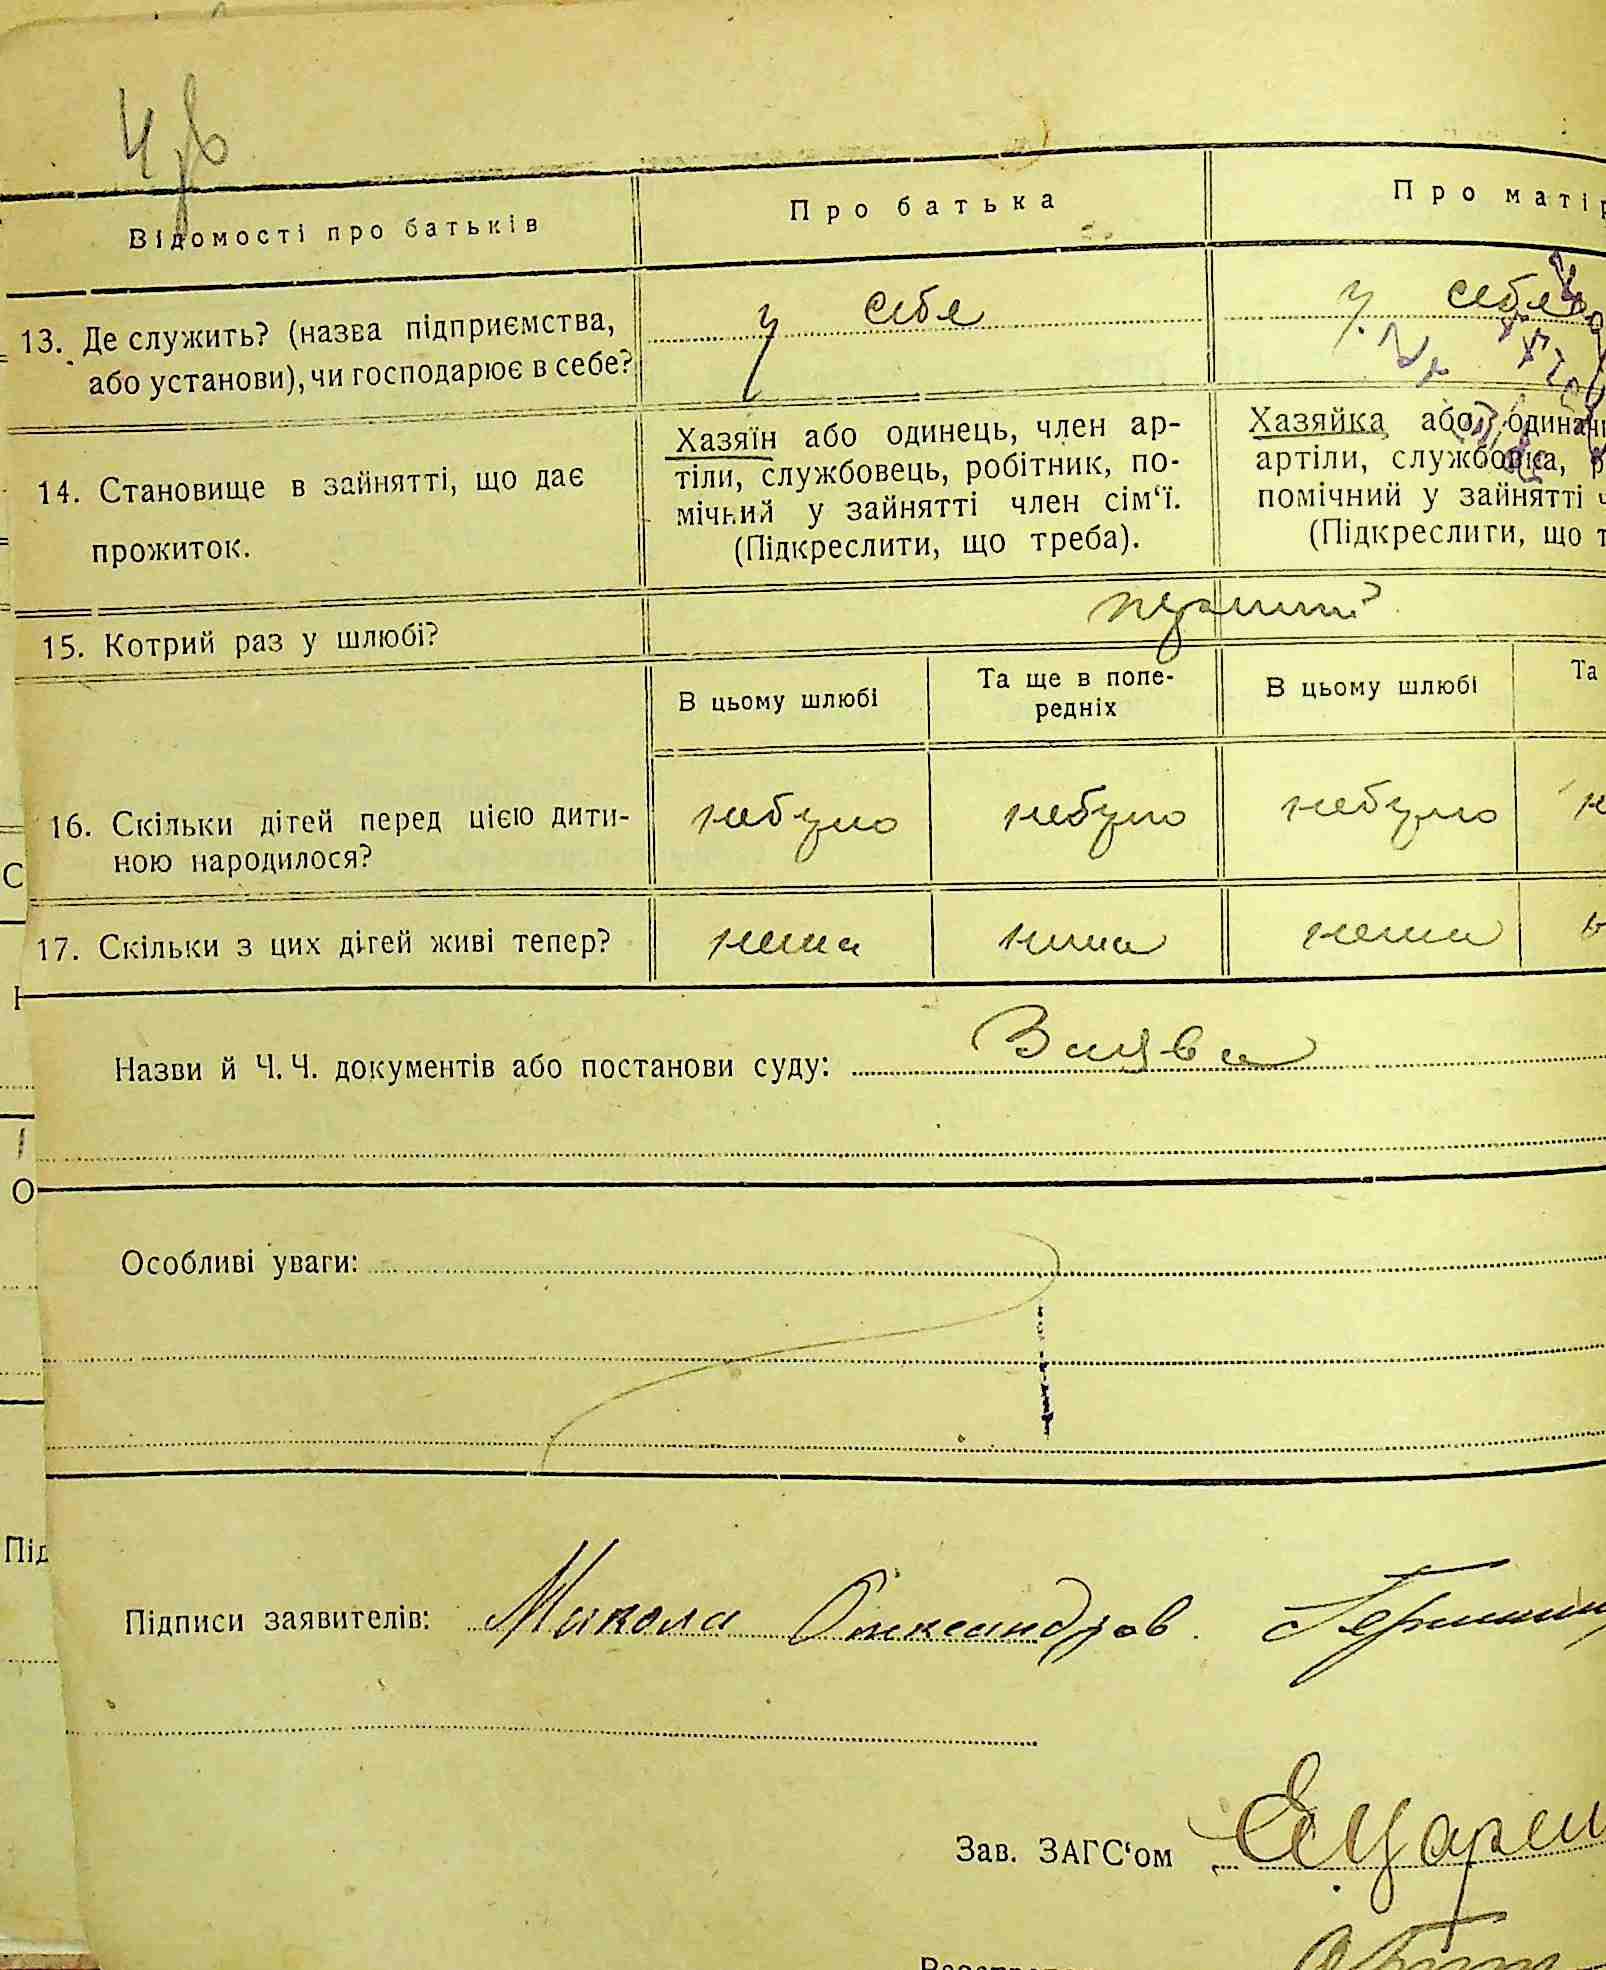 Відомості про батьків
Про батька
Про матір
13. Де служить? (назва підприємства,
або установи), чи господарює в себе?
у себе
у себе
14. Становище в зайнятті, що дає
прожиток.
Хазяїн або одинець, член ар-
тіли, службовець, робітник, по-
мічний у зайнятті член сім‘ї.
(Підкреслити, що треба).
Хазяйка або
артіли,
помічний у зайнятті
(Підкреслити, що т
15. Котрий раз у шлюбі?
перший
В цьому шлюбі
Та ще в попе-
редніх
В цьому шлюбі
Та
16. Скільки дітей перед цією дити-
ною народилося?
небуло
небуло
небуло
17. Скільки з цих дітей живі тепер?
нема
нема
нема
Назви й Ч. Ч. документів або постанови суду:
Заява
Особливі уваги:
Під
Підписи заявителів: Микола Олександров
Зав. ЗАГС‘ом